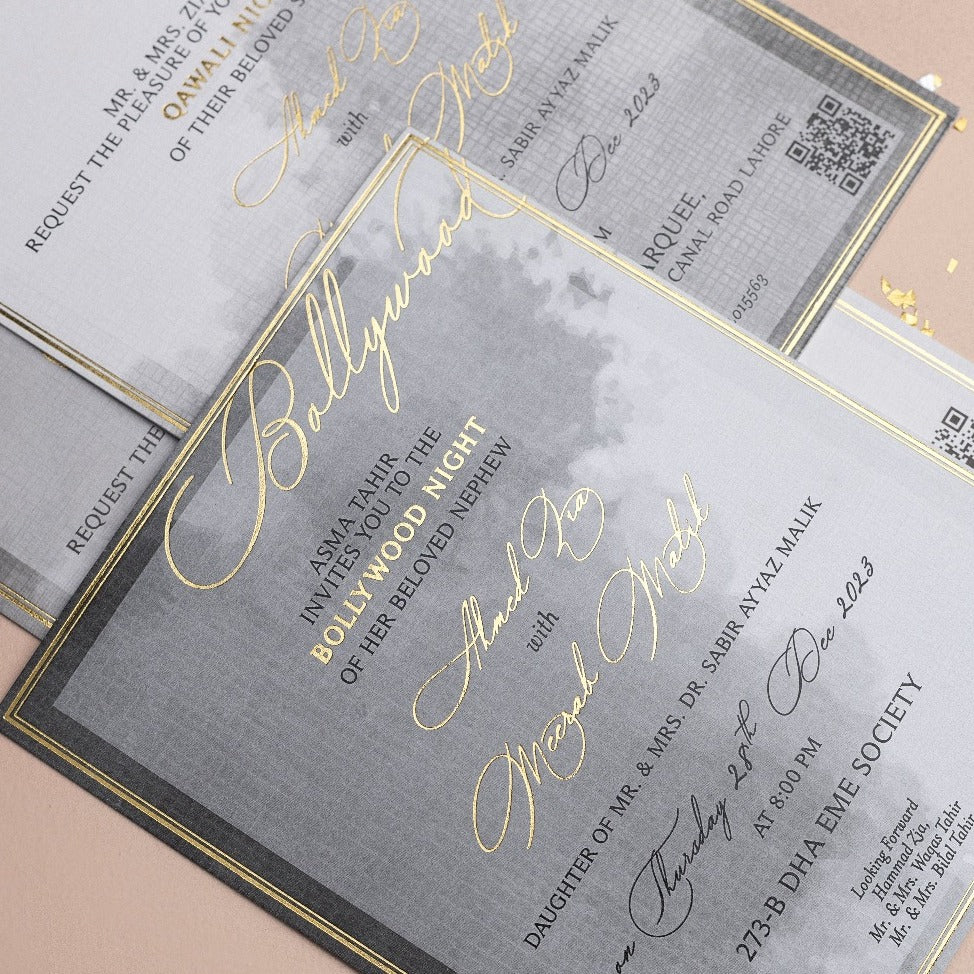 MR. & MRS. ZI
REQUEST THE PLEASURE OF YO
QAWALI NIG
OF THEIR BELOVED S
Ahmed Zia
with
Malik
SABIR AYYAZ MALIK
Dec 2023
M
ARQUEE,
CANAL ROAD LAHORE
.015563
REQUEST THE
Bollywood
ASMA TAHIR
INVITES YOU TO THE
BOLLYWOOD NIGHT
OF HER BELOVED NEPHEW
Ahmed Zia
with
Meerab Malik
DAUGHTER OF MR. & MRS. DR. SABIR AYYAZ MALIK
on Thursday 28th Dec 2023
AT 8:00 PM
273-B DHA EME SOCIETY
Looking Forward
Hammad Zia,
Mr. & Mrs. Waqas Tahir
Mr. & Mrs. Bilal Tahir